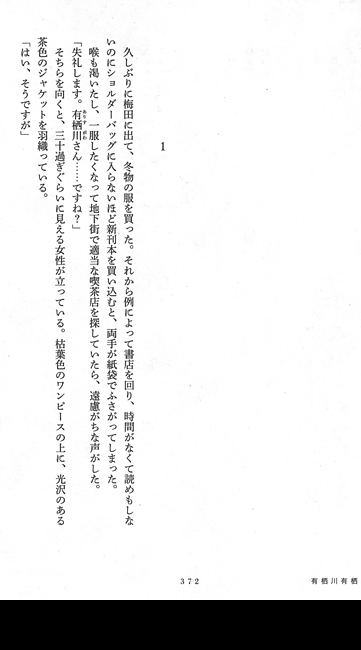 1
久しぶりに梅田に出て、冬物の服を買った。それから例によって書店を回り、時間がなくて読めもしな
いのにショルダーバッグに入らないほど新刊本を買い込むと、両手が紙袋でふさがってしまった。
喉も渇いたし、一服したくなって地下街で適当な喫茶店を探していたら、遠慮がちな声がした。
「失礼します。有栖川さん……ですね?」
そちらを向くと、三十過ぎぐらいに見える女性が立っている。枯葉色のワンピースの上に、光沢のある
茶色のジャケットを羽織っている。
「はい、そうですが」
372
有栖川有栖